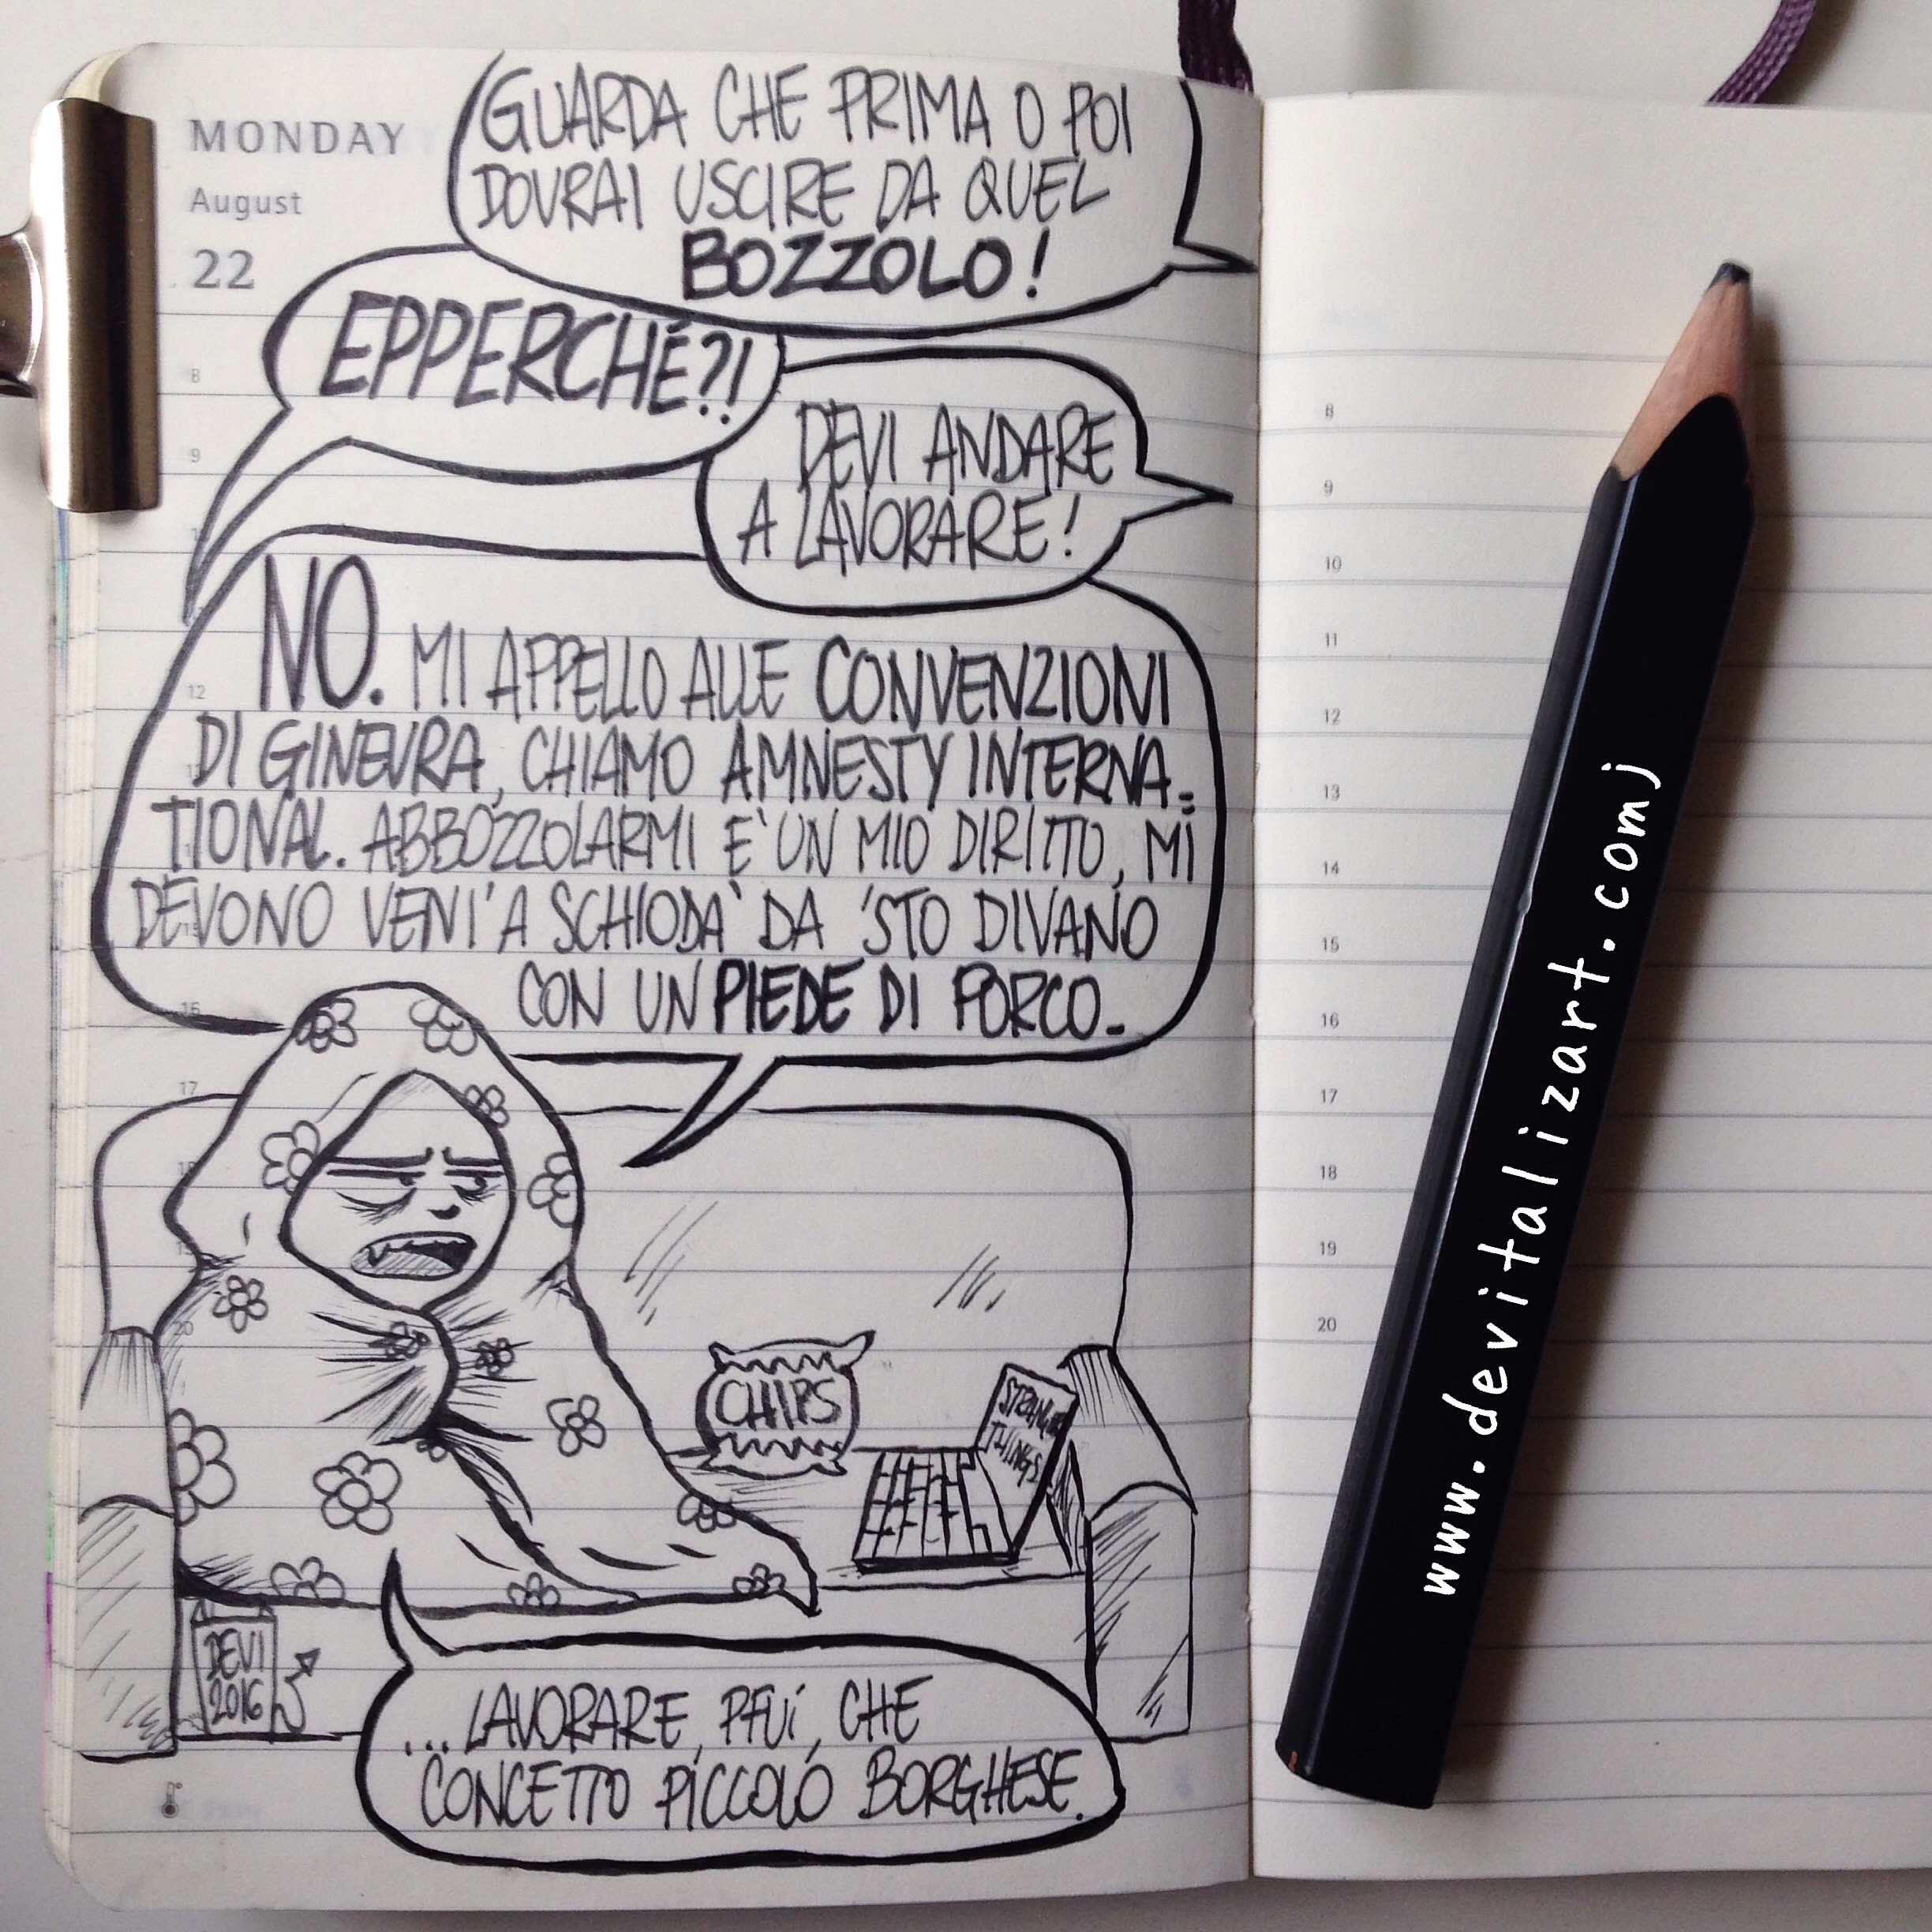 MONDAY
August
22
GUARDA CHE PRIMA O POI
DOVRAI USCIRE DA QUEL
BOZZOLO!
EPPERCHÉ?!
DEVI ANDARE
A LAVORARE!
NO. MI APPELLO ALLE CONVENZIONI
DI GINEVRA, CHIAMO AMNESTY INTERNA=
TIONAL. ABBOZZOLARMI E' UN MIO DIRITTO, MI
DEVONO VENI' A SCHIODA' DA 'STO DIVANO
CON UN PIEDE DI PORCO.
CHIPS
STRANGER
THINGS
DEVI
2016
...LAVORARE, PFUI, CHE
CONCETTO PICCOLO BORGHESE.
8
9
12
16
17
20
8
9
10
11
12
13
14
15
16
17
18
19
20
www.devitalizart.comj